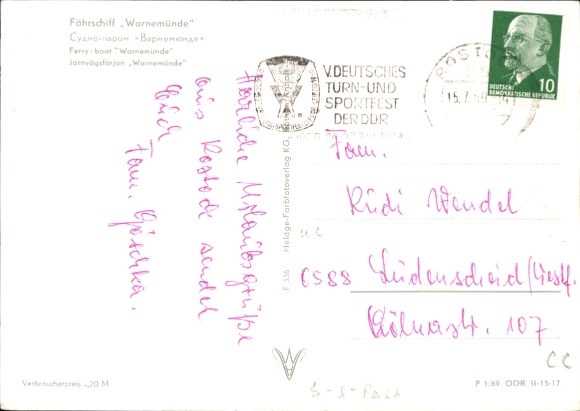 Fährschiff „Warnemünde"
Судно-паром «Варнемюнде»
Ferry-boat "Warnemünde"
Järnvägsfärjan „Warnemünde"
Herzliche Urlaubsgrüße
aus Rostock sendet
Euch
Fam.
V. DEUTSCHES
TURN- UND
SPORTFEST
DER DDR
ROSTO
15.7.69
10
DEUTSCHE
DEMOKRATISCHE REPUBLIK
Heldge-Farbfotoverlag KG
F 336
Fam.
Rudi Wendel
588 Lüdenscheid/Westf.
Kölnerstr. 107
Verbraucherpreis -,20 M
P 1/69 ODR II-15-17
CC